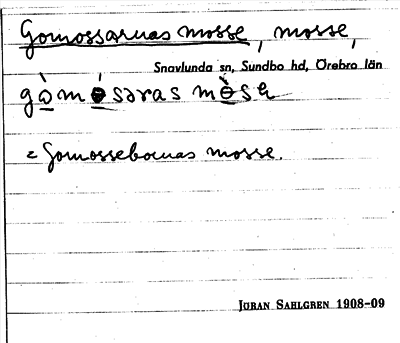 Gomossarnas mosse, mosse,
Snavlunda sn, Sundbo hd, Örebro län
= Gomossebornas mosse.
JÖRAN SAHLGREN 1908-09